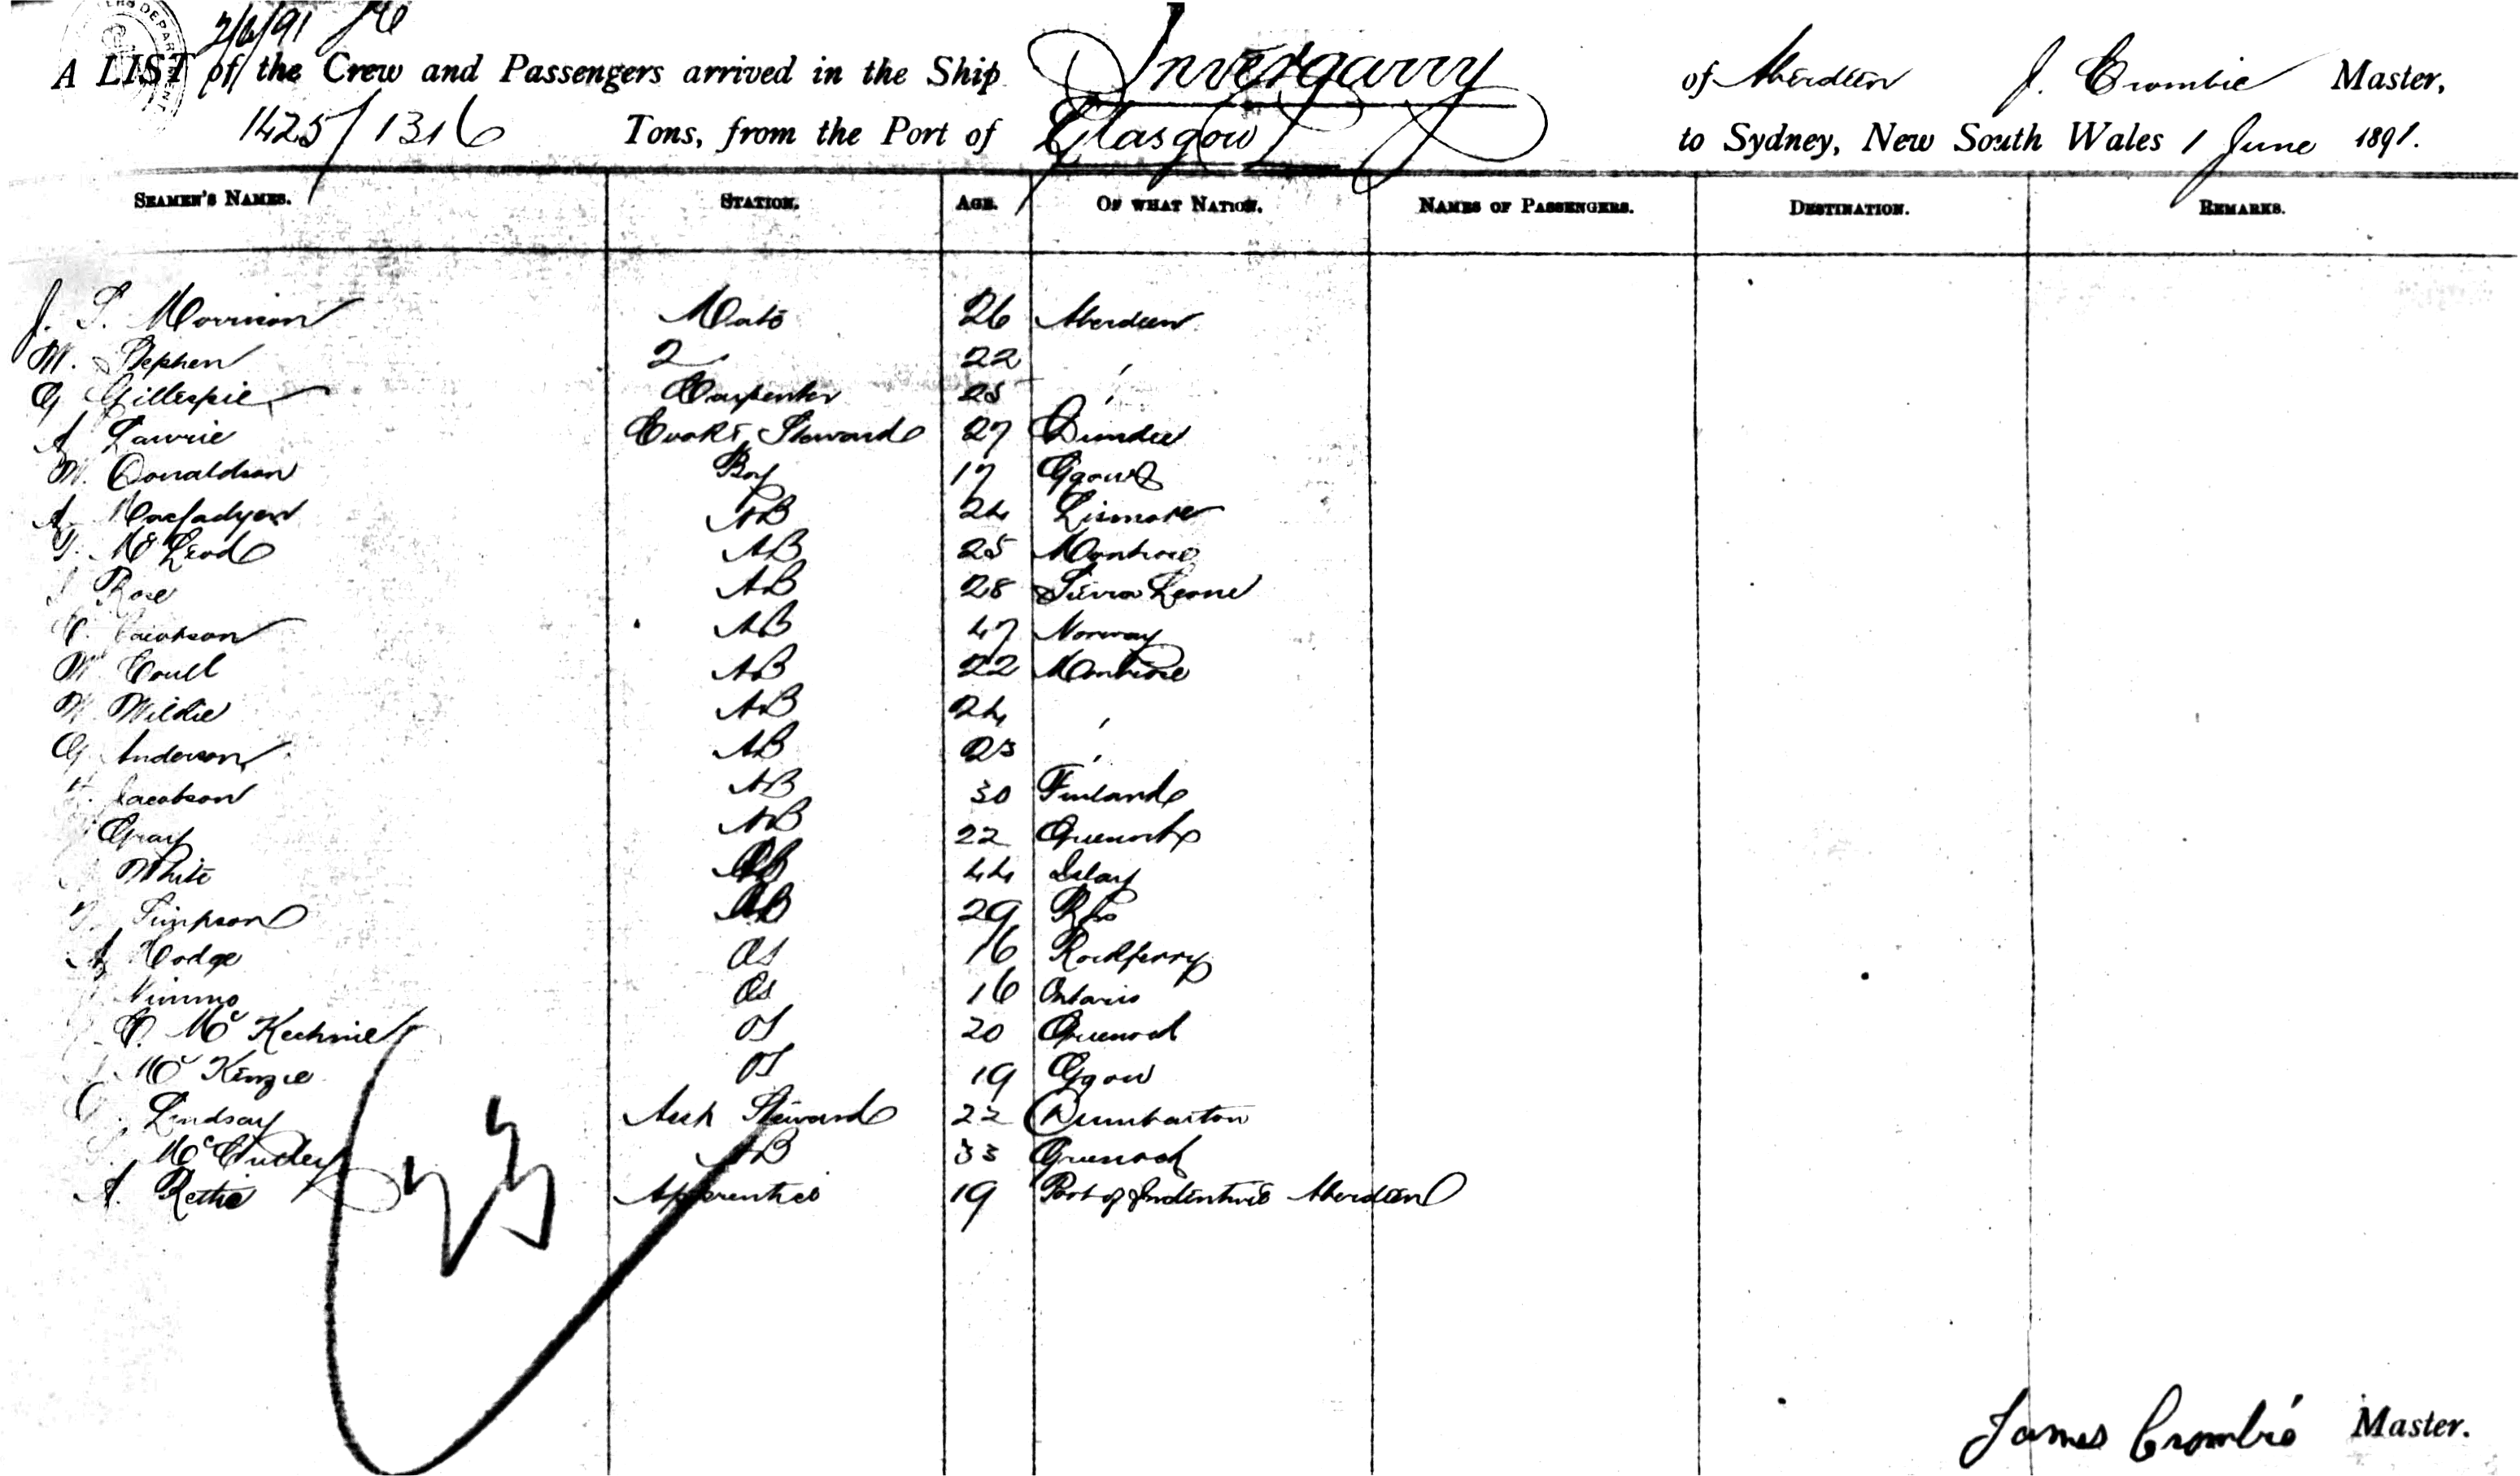 2/6/91
A LIST of the Crew and Passengers arrived in the Ship Invergarry of Aberdeen J. Crombie Master,
1425/1316 Tons, from the Port of Glasgow to Sydney, New South Wales 1 June 1891.
SEAMEN'S NAMES. STATION. AGE. OF WHAT NATION. NAMES OF PASSENGERS. DESTINATION. REMARKS.
J. S. Morrison Mate 26 Aberdeen
W. Stephen 2 22 "
G Gillespie Carpenter 25 "
A Lawrie Cook & Steward 27 Dundee
W. Donaldson Boy 17 Ggow
A. Macfadyen AB 24 Lismore
McLeod AB 25 Montrose
Rose AB 28 Sierra Leone
Jacobson AB 47 Norway
W Coull AB 22 Montrose
W. Wilkie AB 24 "
G Anderson AB 23 "
Jacobson AB 30 Finland
Gray AB 22 Greenock
White AB 44 Islay
Simpson AB 29
A Hodge OS 16 Rockferry
Nimmo OS 16 Ontario
McKechnie OS 20 Greenock
McKenzie OS 19 Ggow
Lindsay Steward 22 Dumbarton
AB 33 Greenock
A. Rettie Apprentice 19 Port of Indentures Aberdeen
23
James Crombie Master.